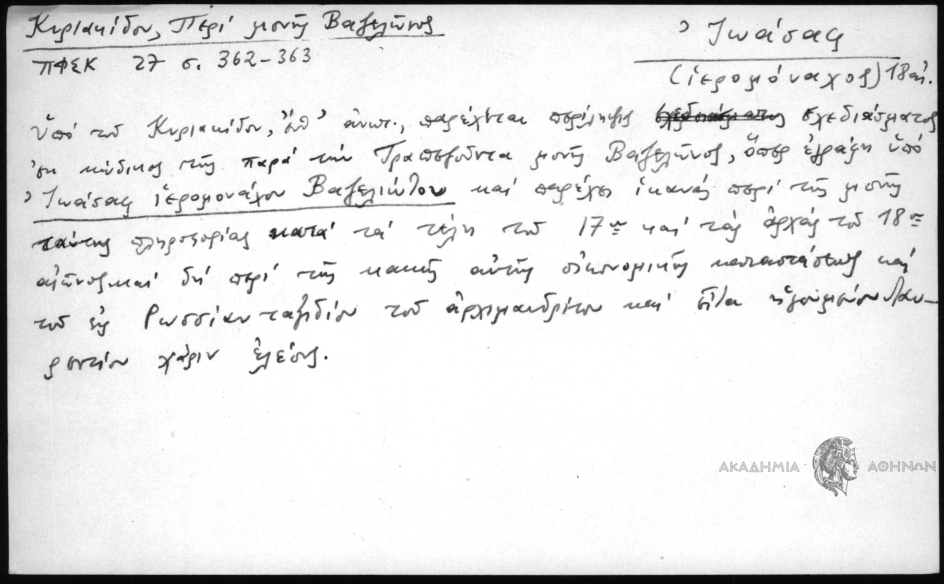 Κυριακίδου, Περί μονῆς Βαζελῶνος
Ἰωάσαφ
ΠΦΣΚ 27 σ. 362-363
(ἱερομόναχος) 18 αἰ.
Ὑπό τοῦ Κυριακίδου, ἔνθ' ἀνωτ., παρέχεται περίληψις σχεδιάσματος
ἐκ κώδικος τῆς παρά τήν Τραπεζοῦντα μονῆς Βαζελῶνος, ὅπερ ἐγράφη ὑπό
Ἰωάσαφ ἱερομονάχου Βαζελιώτου καί παρέχει ἱκανάς περί τῆς μονῆς
ταύτης πληροφορίας κατά τά τέλη τοῦ 17ου καί τάς ἀρχάς τοῦ 18ου
αἰῶνος καί δή περί τῆς κακῆς αὐτῆς οἰκονομικῆς καταστάσεως καί
τοῦ εἰς Ρωσσίαν ταξιδίου τοῦ ἀρχιμανδρίτου καί εἶτα ἡγουμένου Λαυ-
ρεντίου χάριν ἐλέους.
ΑΚΑΔΗΜΙΑ ΑΘΗΝΩΝ